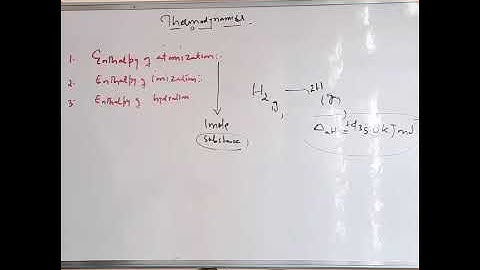 Thermodynamics
1. Enthalpy of atomization:-
2. Enthalpy of ionization:-
3. Enthalpy of hydration
1 mole
substance
H2(g) → 2H(g)